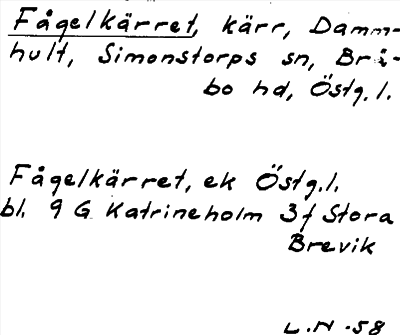 Fågelkärret, kärr, Damm-
hult, Simonstorps sn, Brå-
bo hd, Östg.l.
Fågelkärret, ek Östg.l.
bl. 9 G Katrineholm 3f Stora
Brevik
L.N -58